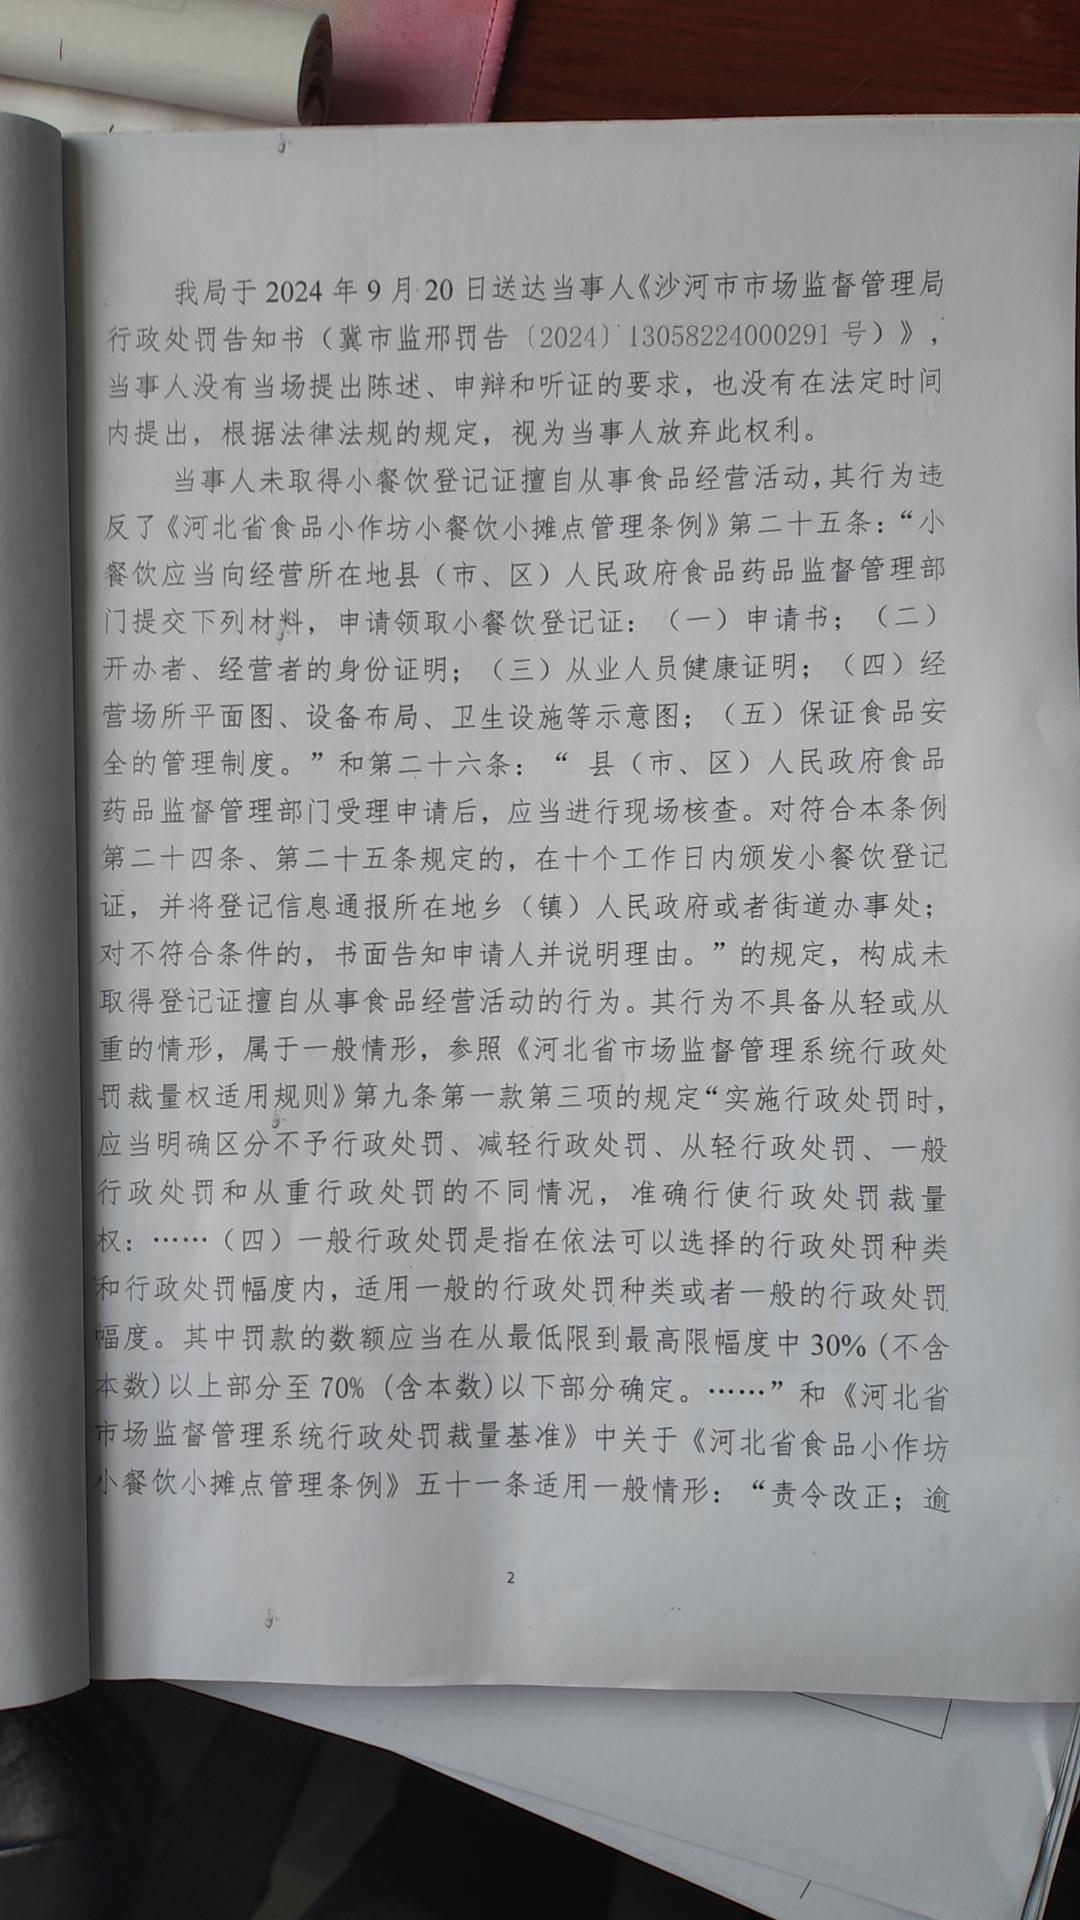 我局于 2024 年 9 月 20 日送达当事人《沙河市市场监督管理局
行政处罚告知书（冀市监邢罚告〔2024〕13058224000291 号）》，
当事人没有当场提出陈述、申辩和听证的要求，也没有在法定时间
内提出，根据法律法规的规定，视为当事人放弃此权利。
当事人未取得小餐饮登记证擅自从事食品经营活动，其行为违
反了《河北省食品小作坊小餐饮小摊点管理条例》第二十五条：“小
餐饮应当向经营所在地县（市、区）人民政府食品药品监督管理部
门提交下列材料，申请领取小餐饮登记证：（一）申请书；（二）
开办者、经营者的身份证明；（三）从业人员健康证明；（四）经
营场所平面图、设备布局、卫生设施等示意图；（五）保证食品安
全的管理制度。”和第二十六条：“ 县（市、区）人民政府食品
药品监督管理部门受理申请后，应当进行现场核查。对符合本条例
第二十四条、第二十五条规定的，在十个工作日内颁发小餐饮登记
证，并将登记信息通报所在地乡（镇）人民政府或者街道办事处；
对不符合条件的，书面告知申请人并说明理由。”的规定，构成未
取得登记证擅自从事食品经营活动的行为。其行为不具备从轻或从
重的情形，属于一般情形，参照《河北省市场监督管理系统行政处
罚裁量权适用规则》第九条第一款第三项的规定“实施行政处罚时，
应当明确区分不予行政处罚、减轻行政处罚、从轻行政处罚、一般
行政处罚和从重行政处罚的不同情况，准确行使行政处罚裁量
权：……（四）一般行政处罚是指在依法可以选择的行政处罚种类
和行政处罚幅度内，适用一般的行政处罚种类或者一般的行政处罚
幅度。其中罚款的数额应当在从最低限到最高限幅度中 30%（不含
本数)以上部分至 70%（含本数)以下部分确定。……”和《河北省
市场监督管理系统行政处罚裁量基准》中关于《河北省食品小作坊
小餐饮小摊点管理条例》五十一条适用一般情形：“责令改正；逾
2